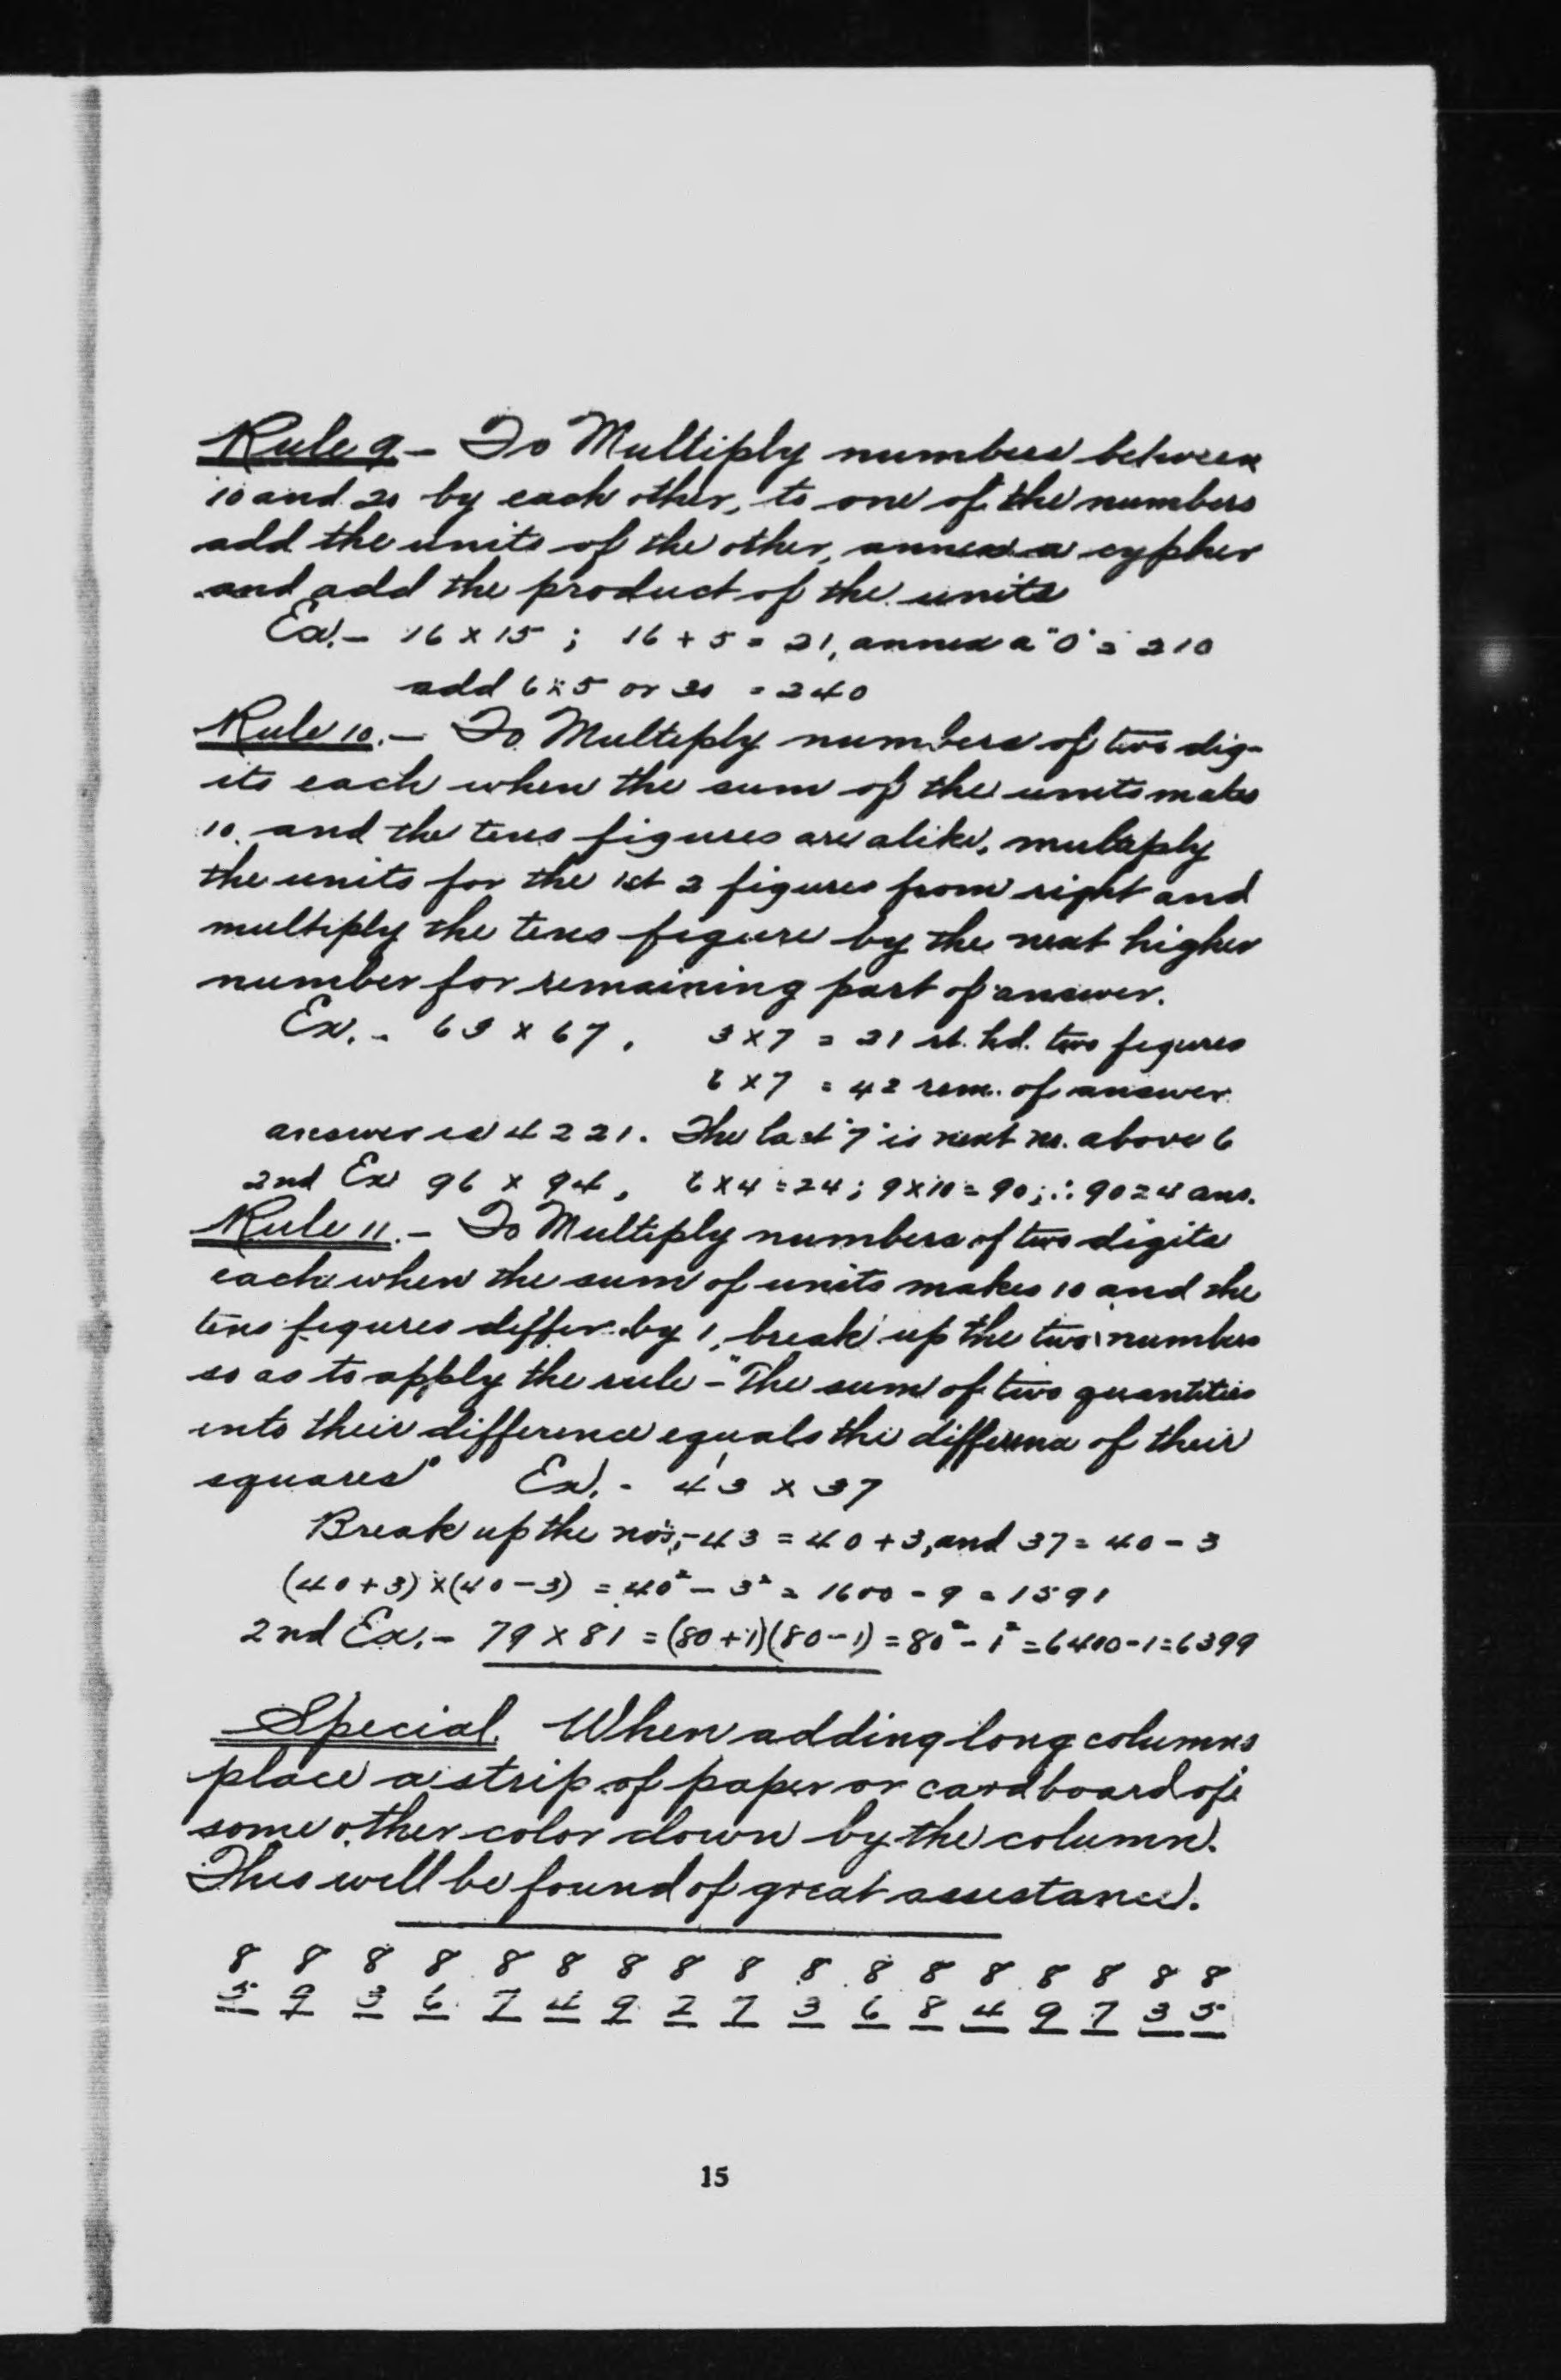 Rule 9 - To Multiply numbers between
10 and 20 by each other, to one of the numbers
add the units of the other, annex a cypher
and add the product of the units
Ex. - 16 x 15 ; 16 + 5 = 21, annex a "0" = 210
add 6 x 5 or 30 = 240
Rule 10. - To Multiply numbers of two dig-
its each when the sum of the units makes
10 and the tens figures are alike, multiply
the units for the 1st 2 figures from right and
multiply the tens figure by the next higher
number for remaining part of answer.
Ex. - 63 x 67, 3 x 7 = 21 rt. hd. two figures
6 x 7 = 42 rem. of answer
answer is 4221. The last "7" is next no. above 6
2nd Ex 96 x 94, 6 x 4 = 24; 9 x 10 = 90; ∴ 9024 ans.
Rule 11. - To Multiply numbers of two digits
each when the sum of units makes 10 and the
tens figures differ by 1, break up the two numbers
so as to apply the rule - "The sum of two quantities
into their difference equals the difference of their
squares" Ex. - 43 x 37
Break up the nos, - 43 = 40 + 3, and 37 = 40 - 3
(40 + 3) x (40 - 3) = 40² - 3² = 1600 - 9 = 1591
2nd Ex. - 79 x 81 = (80 + 1)(80 - 1) = 80² - 1² = 6400 - 1 = 6399
Special. When adding long columns
place a strip of paper or cardboard of
some other color down by the column.
This will be found of great assistance.
8 8 8 8 8 8 8 8 8 8 8 8 8 8 8 8 8
5 9 3 6 7 4 9 2 7 3 6 8 4 9 7 3 5
15